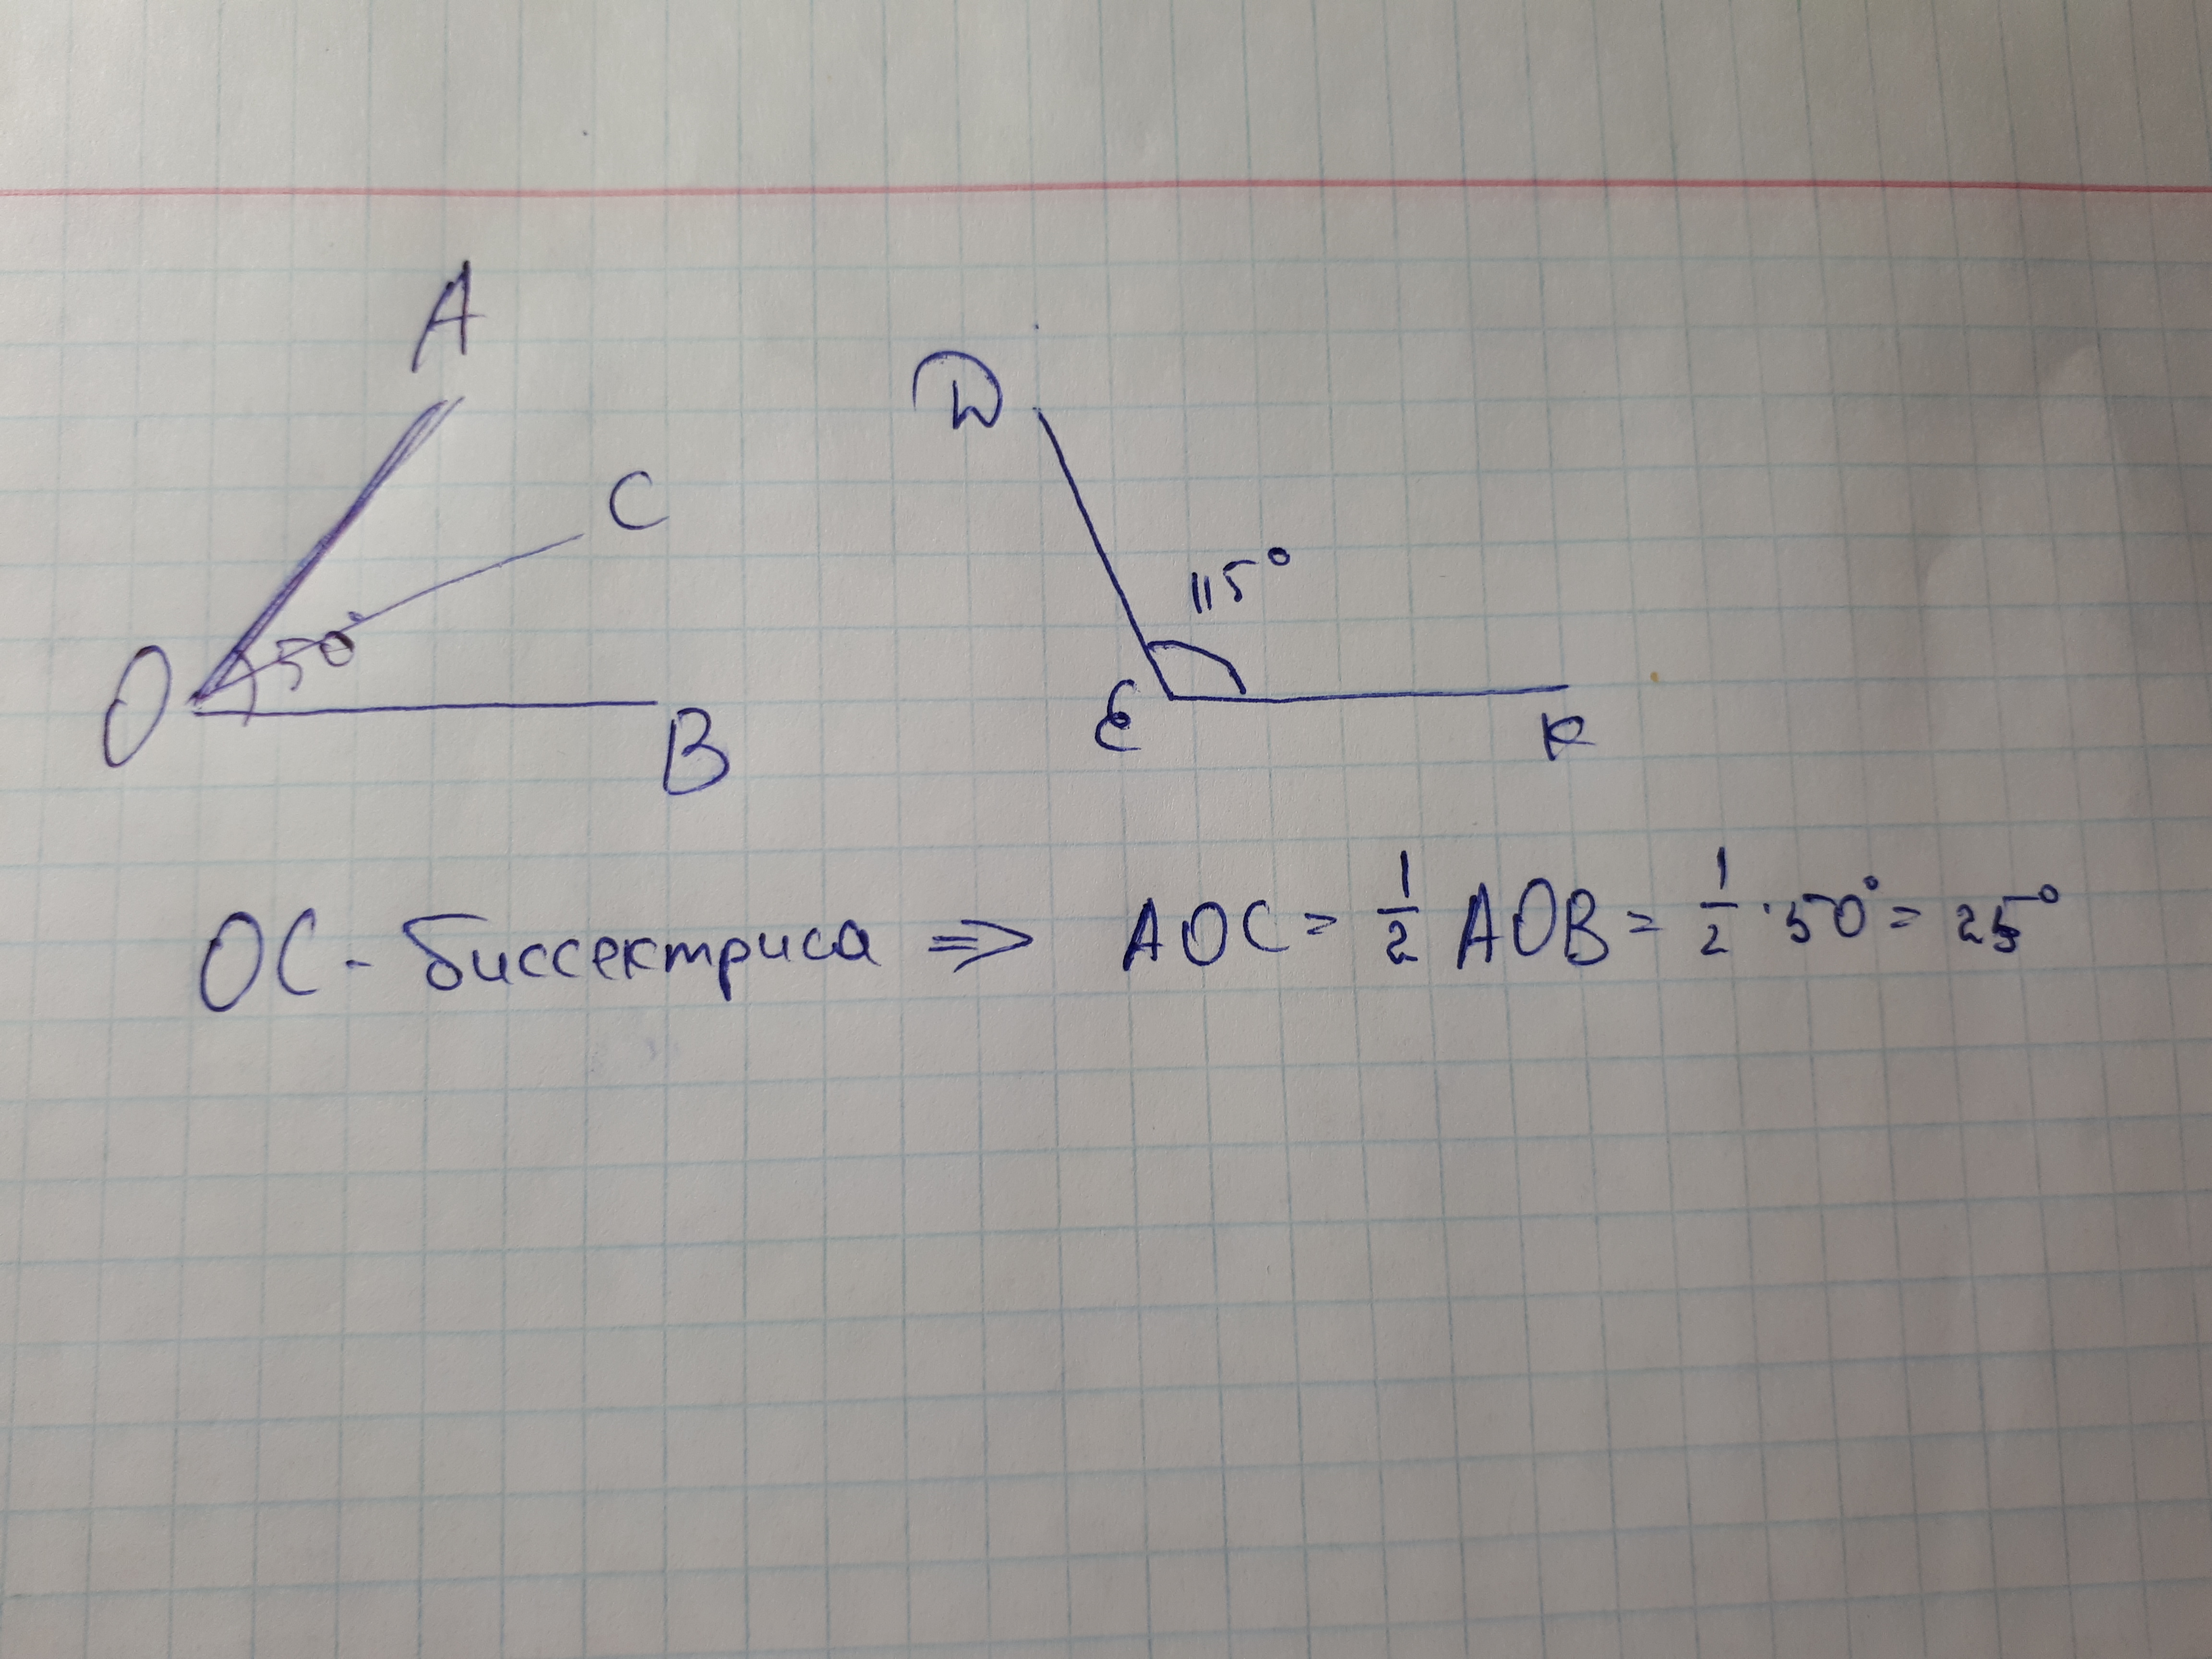 A
C
50°
O
B
D
115°
E
K
OC - биссектриса => AOC = 1/2 AOB = 1/2 · 50° = 25°